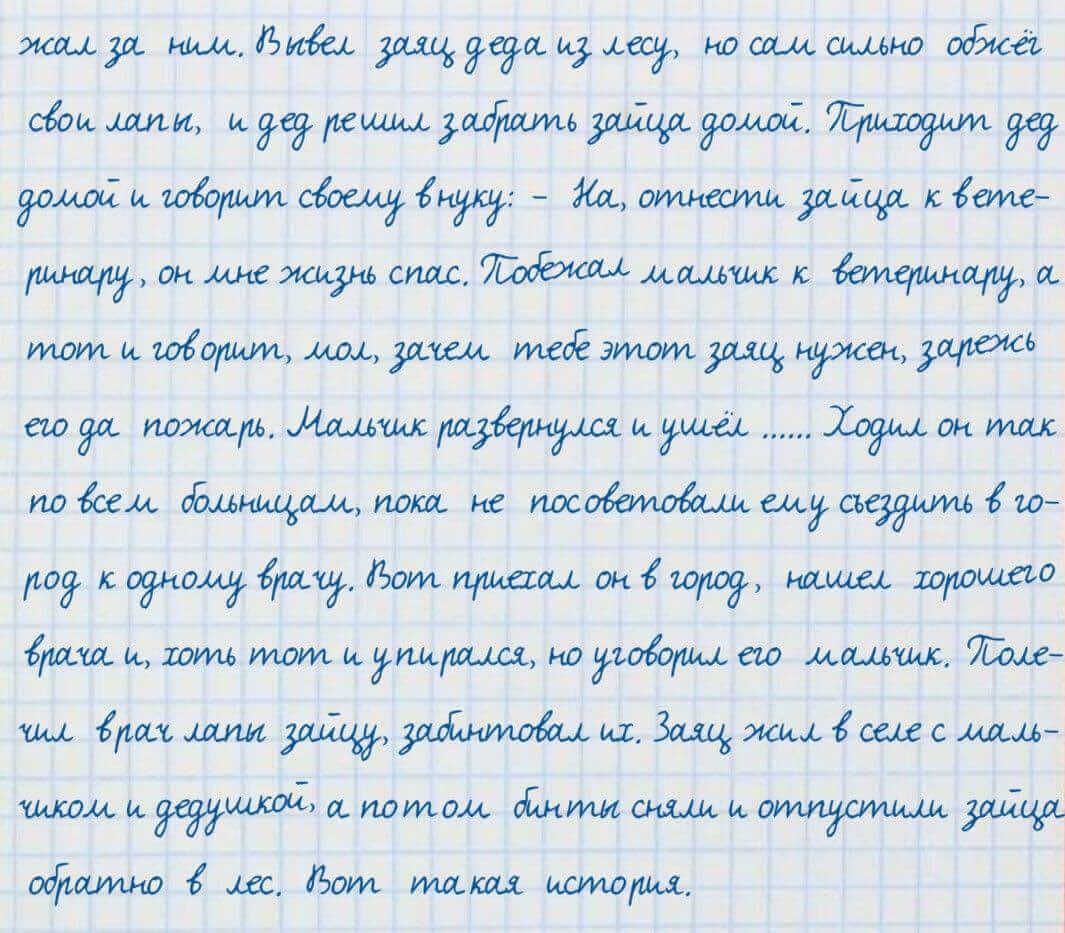 жал за ним. Вывел заяц деда из лесу, но сам сильно обжёг
свои лапы, и дед решил забрать зайца домой. Приходит дед
домой и говорит своему внуку: – На, отнести зайца к вете-
ринару, он мне жизнь спас. Побежал мальчик к ветеринару, а
тот и говорит, мол, зачем тебе этот заяц нужен, зарежь
его да пожарь. Мальчик развернулся и ушёл ...... Ходил он так
по всем больницам, пока не посоветовали ему съездить в го-
род к одному врачу. Вот приехал он в город, нашел хорошего
врача и, хоть тот и упирался, но уговорил его мальчик. Поле-
чил врач лапы зайцу, забинтовал их. Заяц жил в селе с маль-
чиком и дедушкой, а потом бинты сняли и отпустили зайца
обратно в лес. Вот такая история.